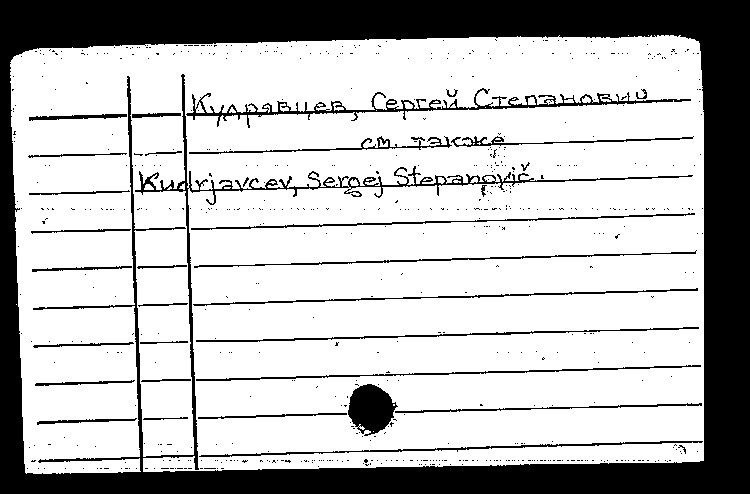 Кудрявцев, Сергей Степанович
см. также
Kudrjavcev, Sergej Stepanovič.